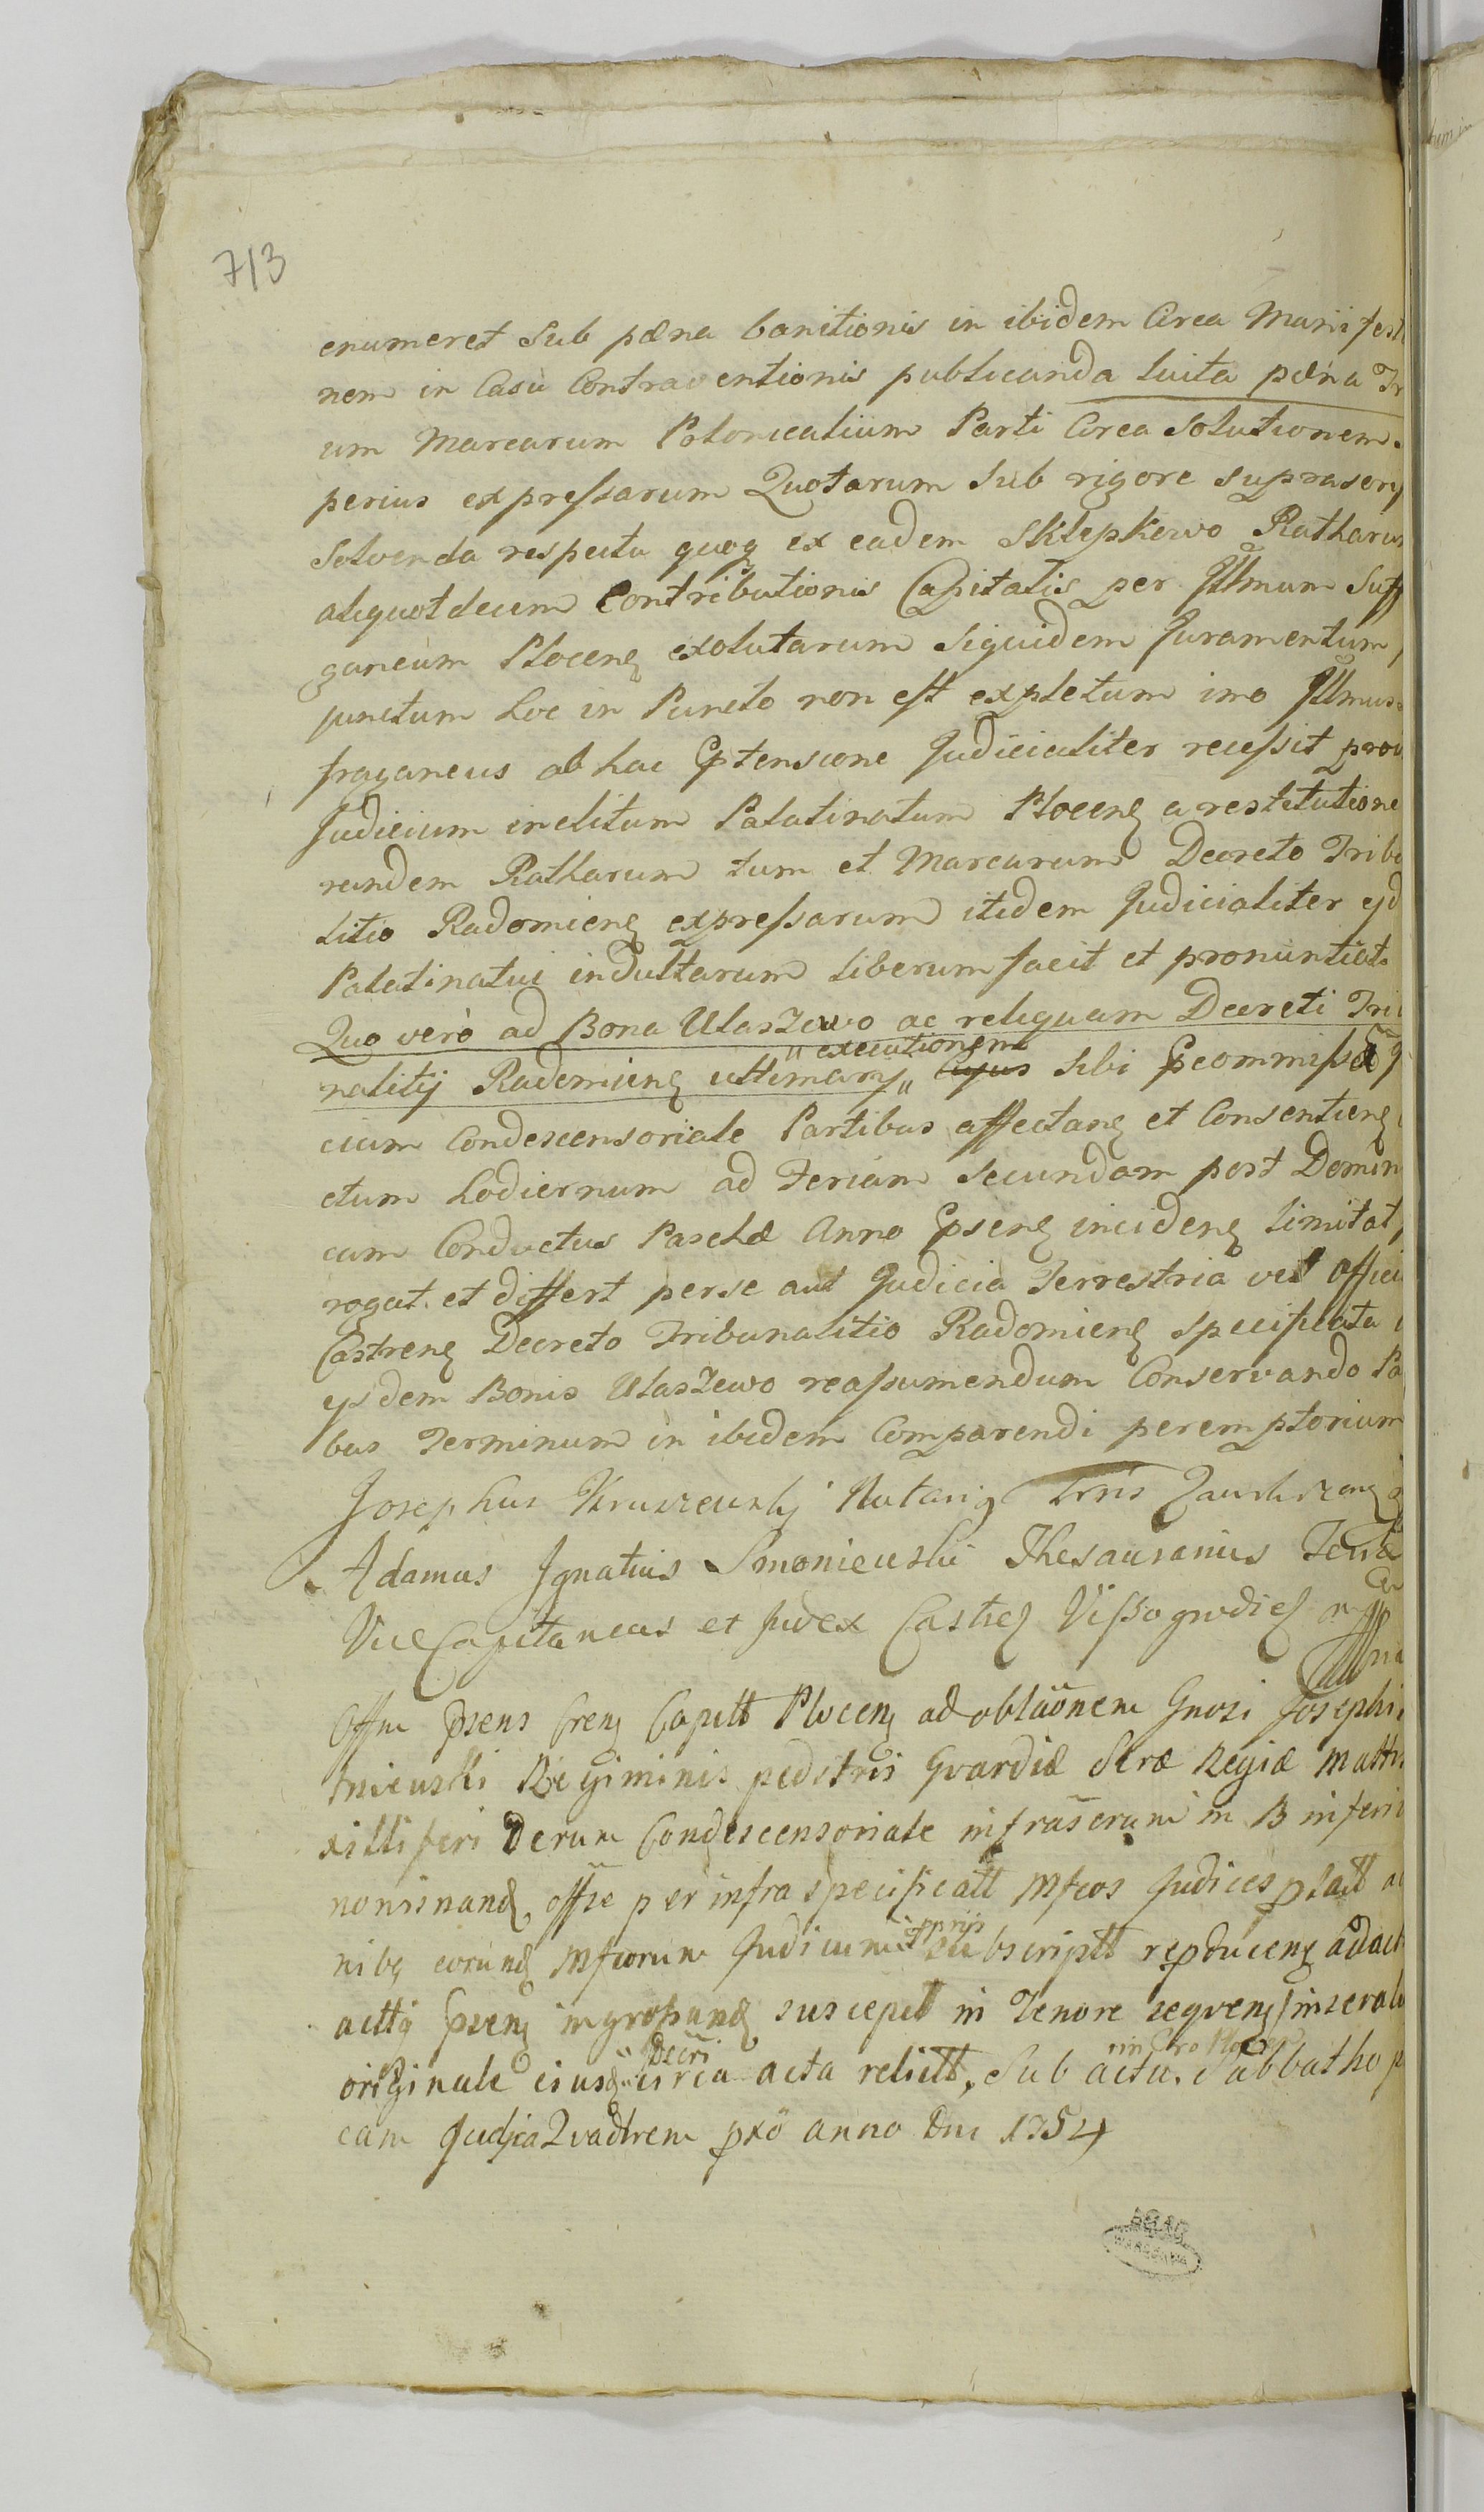 713
enumeret Sub pæna banitionis in ibidem Circa Manifest
nem in Casu Contraventionis publicanda luita pæna Tr
um Marcarum Polonicalium Parti Circa Solutionem
perius expressarum Quotarum Sub rigore suprascrip
Solvenda respectu quoq ex eadem Sklepkowo Ratharum
aliquotdecim Contributionis Capitalis per Jllmum Suff
ganeum Plocens exolutarum Siquidem Juramentum
junctum hoc in Puncto non est expletum imo Jllmus
fraganeus ab hac Prtensione Judicialiter recessit prou
Judicium inclitum Palatinatum Plocens a restitutione
rundem Ratharum tum et Marcarum Decreto Tribu
litio Radomiens expressarum itidem Judicialiter eyd
Palatinatui indultarum liberum facit et pronuntiat.
Quo verò ad Bona Ulaszewo ac reliquam Decreti Tri
nalitij Radomiens ultimarij „ executionem cujus Sibi Prcommissa
cium Condescensoriale Partibus affectans et Consentiens
ctum hodiernum ad Feriam Secundam post Domin
cam Conductus Paschæ Anno Prsens incidens limitat,
rogat. et differt per se aut Judicia Terrestria vel offici
Castrens Decreto Tribunalitio Radomiens specificata
ysdem Bonis Ulaszewo reassumendum Conservando Pa
bus Terminum in ibidem Comparendi peremptorium
Josephus Notariq Trris Zawskrzens
Adamus Jgnatius Smoniewski Thesaurarius Terræ
ViceCapitaneus et Judex Castrēs Vissogrodiēs
Offm Prsens Crens Capitt Plocens ad oblāōnem Gnosi Josephi
mieuski Regiminis pedstris Gvardiæ Scræ Regiæ Mattis
xilliferi Derum Condescensoriale infrascrum in B inferi
nonisnand offse per infra specificatt Mfcos Judices prlatt
nibq eorund Mfcorum Judicum pprijs subscriptt reproducens ad act
acttq Prsens ingrossand suscepit in Tenore seqvens inseratu
originale eiusd Decri circa acta relictt. Sub actu. Sabbatho
cam Judica Qvadtrem prxō anno Dni 1754